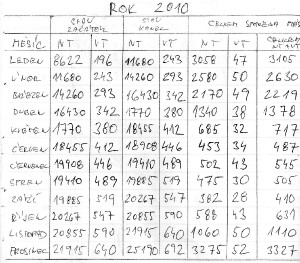 ROK 2010
STAV ZAČÁTEK STAV KONEC CELKEM SPOTŘEBA MĚS
MĚSÍC NT VT NT VT NT VT CELKEM NT+VT
LEDEN 8622 196 11680 243 3058 47 3105
ÚNOR 11680 243 14260 293 2580 50 2630
BŘEZEN 14260 293 16430 342 2170 49 2219
DUBEN 16430 342 1770 380 1340 38 1378
KVĚTEN 1770 380 18455 412 685 32 717
ČERVEN 18455 412 18908 446 453 34 487
ČERVENEC 19908 446 19410 489 502 43 545
SRPEN 19410 489 19885 519 475 30 505
ZÁŘÍ 19885 519 20267 547 382 28 410
ŘÍJEN 20267 547 20855 590 588 43 631
LISTOPAD 20855 590 21915 640 1060 50 1110
PROSINEC 21915 640 25190 692 3275 52 3327